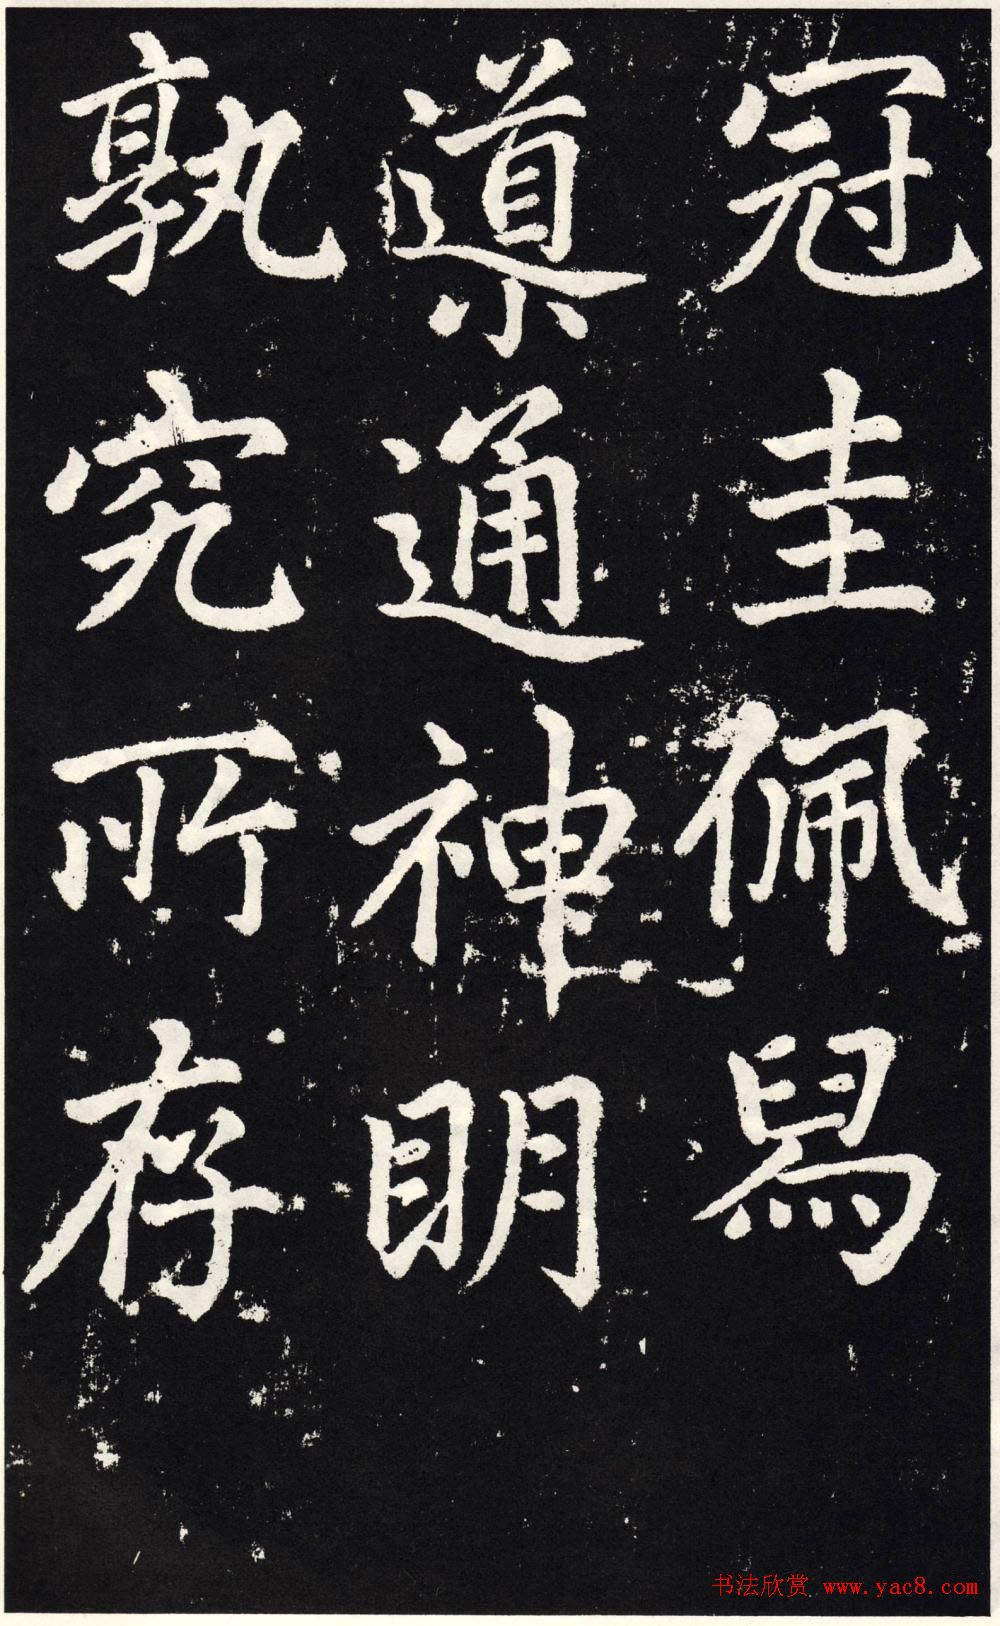 冠圭佩舄
道通神明
孰究所存
书法欣赏 www.yac8.com